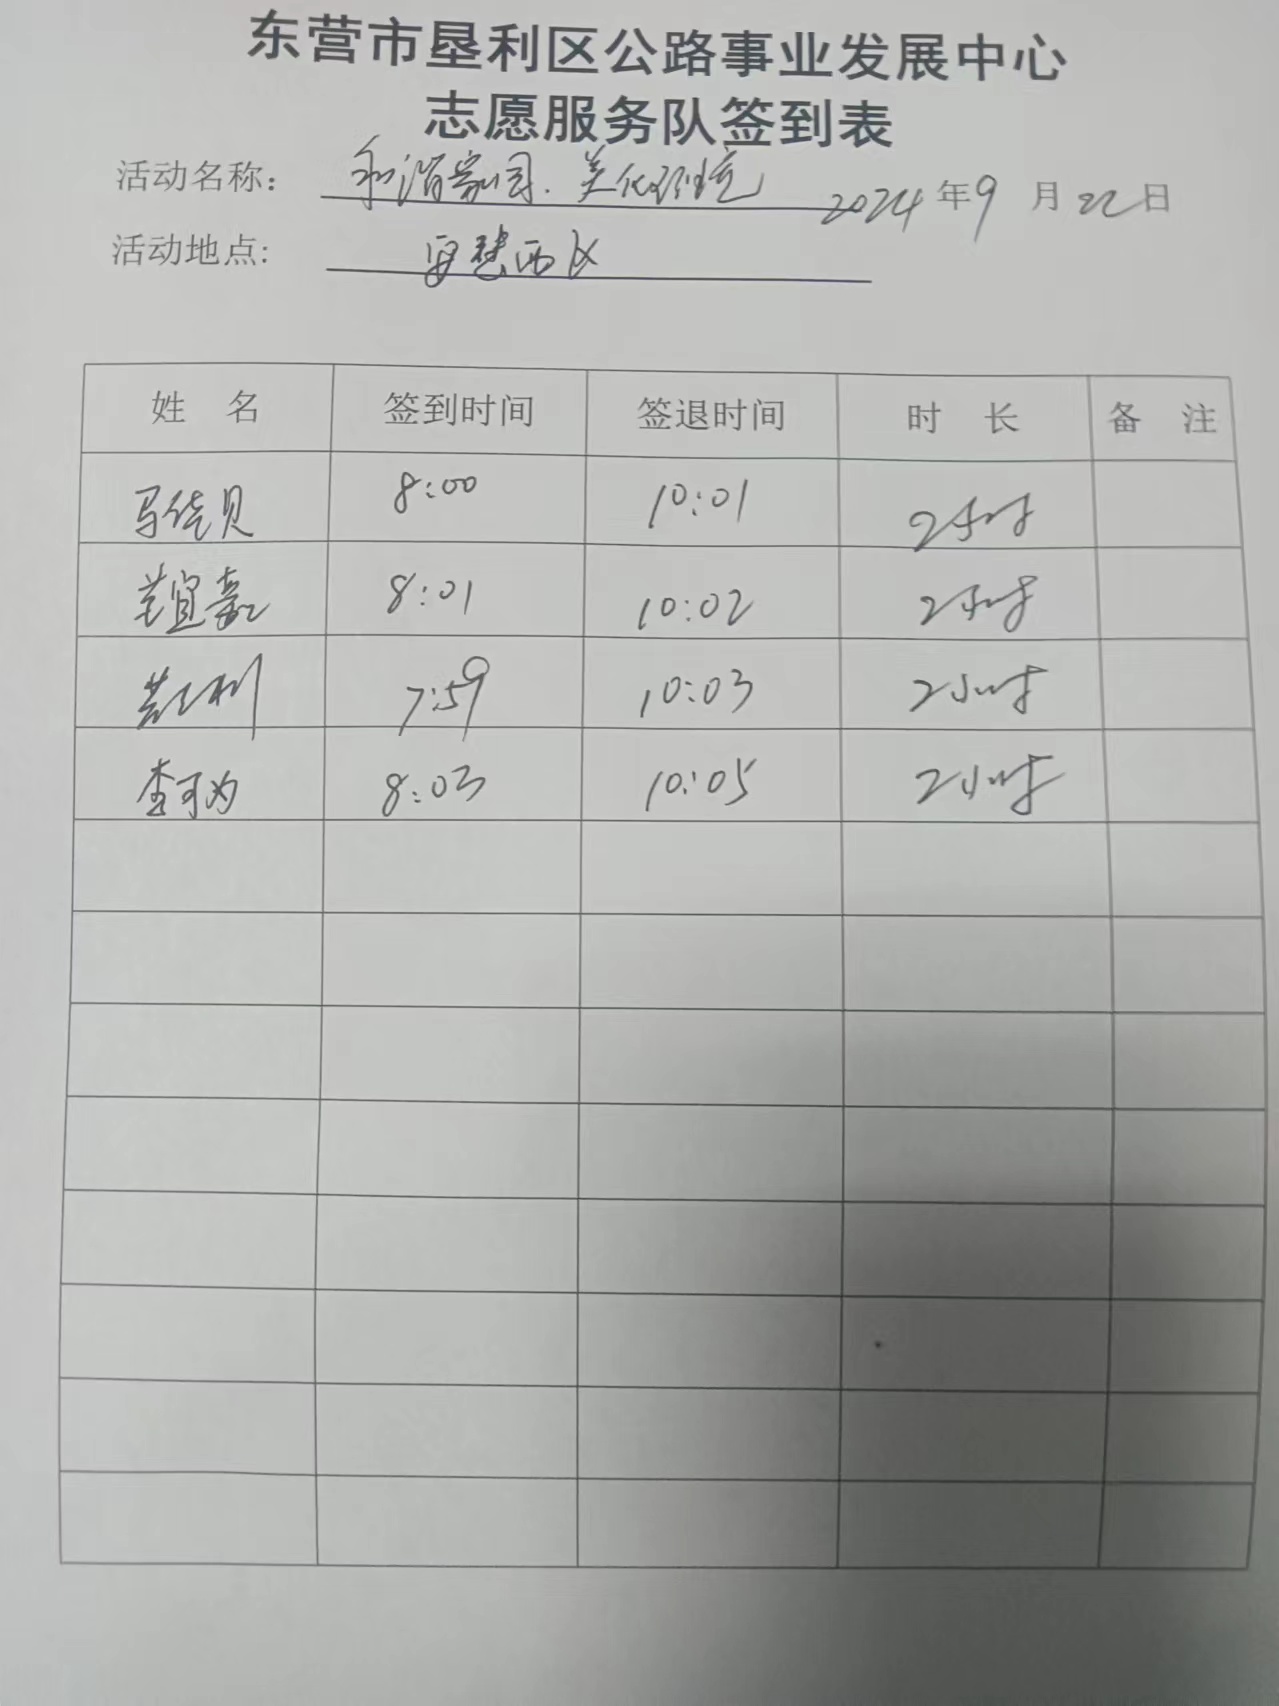 东营市垦利区公路事业发展中心
志愿服务队签到表
活动名称: 和谐家园.美化环境 2024年9月22日
活动地点: 安慧西区
姓 名 签到时间 签退时间 时 长 备 注
马佳贝 8:00 10:01 2小时
宜嘉 8:01 10:02 2小时
7:59 10:03 2小时
李可为 8:03 10:05 2小时